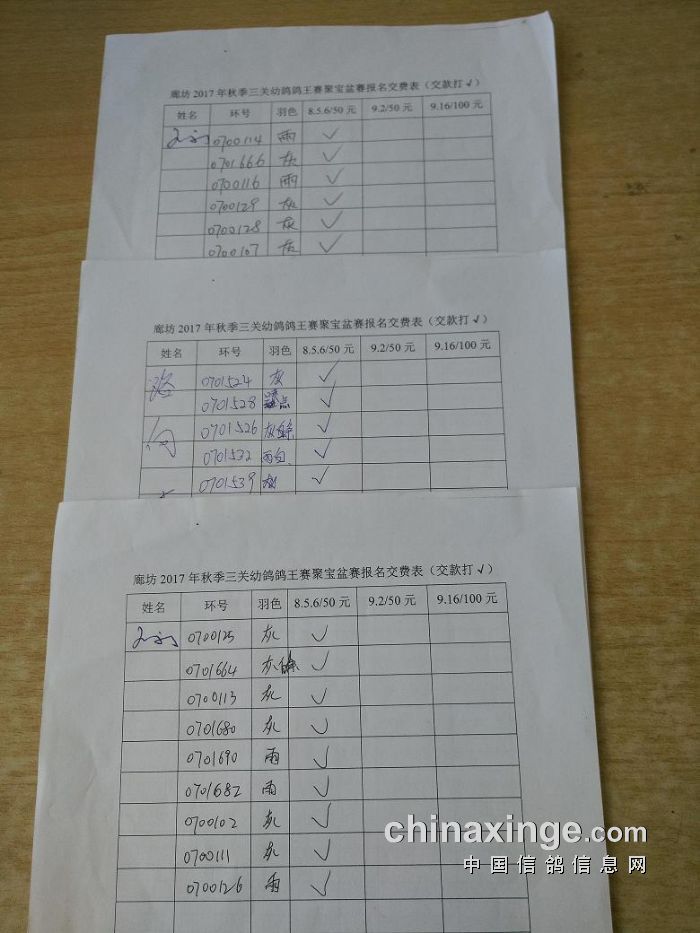 廊坊 2017 年秋季三关幼鸽鸽王赛聚宝盆赛报名交费表（交款打 √）
姓名 环号 羽色 8.5.6/50 元 9.2/50 元 9.16/100 元
0700114 雨 ✓
0701666 灰 ✓
0700116 雨 ✓
0700129 灰 ✓
0700128 灰 ✓
0700107 灰 ✓
廊坊 2017 年秋季三关幼鸽鸽王赛聚宝盆赛报名交费表（交款打 √）
姓名 环号 羽色 8.5.6/50 元 9.2/50 元 9.16/100 元
0701524 灰 ✓
0701528 点 ✓
0701526 灰 ✓
0701532 雨白 ✓
0701539 ✓
廊坊 2017 年秋季三关幼鸽鸽王赛聚宝盆赛报名交费表（交款打 √）
姓名 环号 羽色 8.5.6/50 元 9.2/50 元 9.16/100 元
0700125 灰 ✓
0701664 灰 ✓
0700113 灰 ✓
0701680 灰 ✓
0701690 雨 ✓
0701682 雨 ✓
0700102 灰 ✓
0700111 灰 ✓
0700126 雨 ✓
chinaxinge.com
中国信鸽信息网